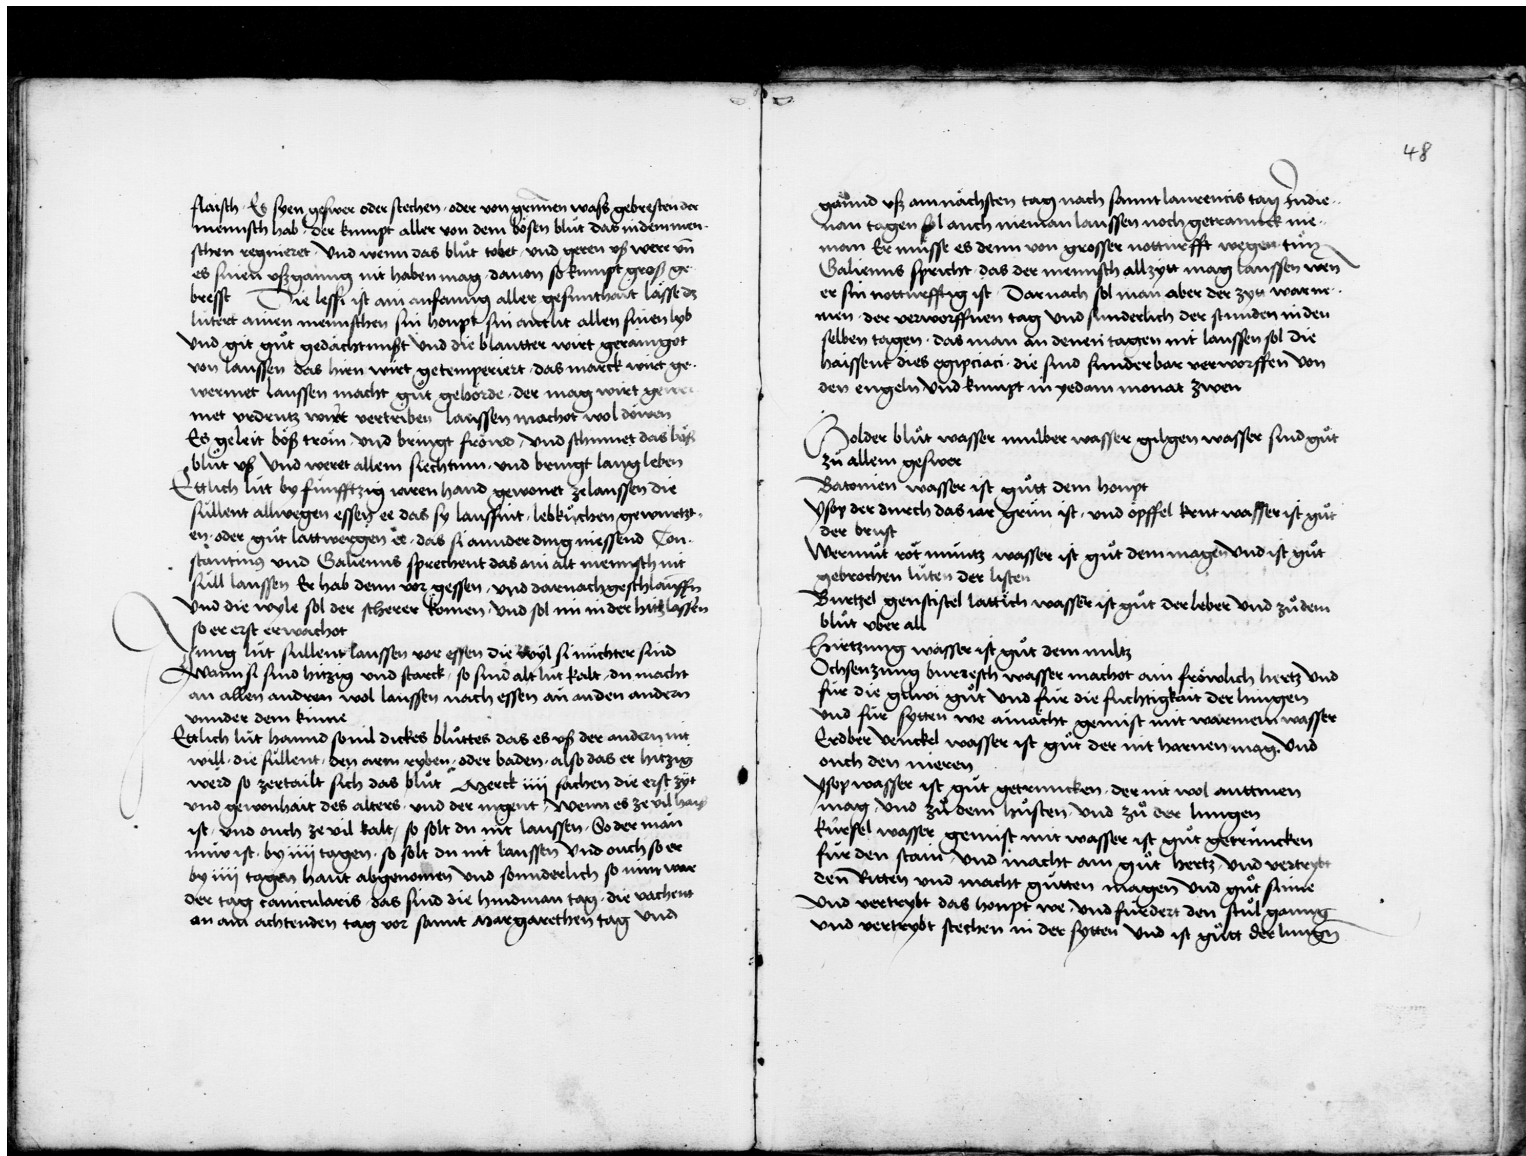 flaisch · Es syen geswer oder stechen · oder von grimen wass gebresten der
mennsch hab · der kumpt aller von dem bosen blůt das in dem men-
schen regnieret · Vnd wenn das blůt tobet · vnd geren vß were vn̄
es sinen vßgaung nit haben mag · dauon so kumpt groß ge-
bresst Die lessi ist ain anfanng aller gesunthait lasse dz
lútert ainen mennschen sin houpt sin antlit allen sinen lyb
Vnd git gůt gedåchtnußt Vnd die blautter wirt gerainigot
von laussen das hirn wirt getemperiert · das marck wirt ge-
wermet laussen macht gůt gehörde · der mag wirt
met vrdrutz wirt vertriben laussen machot wol döwen
Es geleit böß tröm · vnd bringt fröwd · Vnd schinnet das böß
blůt vß Vnd weret allem siechtum · vnd bringt lang leben
Ettlich lút by funfftzig iaren hand gewonet ze laussen die
súllent allwegen essen ee das sy laussint · lebkůchen gewurtzt-
en · oder gůt lattwergen ee · das si annder ding niessend Con-
stantinus vnd Galienus sprechent das ain alt mennsch nit
súll laussen Er hab denn vor gessen · vnd darnach geschlauffn
Vnd die wyle sol der scherer komen · vnd sol im in der hitz lassen
so er erst erwachot
Jung lút sullent laussen vor essen die wyl si nüchter sind
Wann si sind hitzig vnd starck · so sind alt lút kalt · du macht
an allen andren wol laussen nach essen an anden andern
vnnder dem kinne
Ettlich lút hannd so uil dickes blůttes das es vß der andern nit
will · die súllent · den arm ryben · oder baden · also das er hitzig
werd so zertailt sich das blůt Merck iiij sachen die erst zÿt
vnd gewonhait des alters · vnd der iugent · Wenn es ze vil haiß
ist · vnd ouch ze vil kalt · so solt du nit laussen · So der man
núw ist · by iiij tagen · so solt du nit laussen Vnd ouch so er
by iiij tagen haut abgenomen Vnd sonnderlich so nim war
der tag canicularis · das sind die hundman tag · die vachent
an am achtenden tag vor sannt Margarethen tag Vnd
48
gaund vß am nächsten tag nach sannt laurencis tag In die-
nan tagen sol auch nieman laussen noch getranck nie-
man Er můsse es denn von grosser notturfft wegen tun
Galienus spricht · das der mennsch all zytt mag laussen wen
er sin notturfftig ist · Darnach sol man aber der zyt warne-
men · der verworffnen tag Vnd sunderlich der stunden in den
selben tagen · das man an denen tagen nit laussen sol die
haissent dies egipciaci · die sind sunderbar verworffen von
den engeln Vnd kumpt in yedam monat zwen
Holder blůt wasser mulber wasser gilgen wasser sind gůt
zů allem geswer
Batonien wasser ist gůtt dem houpt
Ysop der durch das iar grün ist · vnd öpffel krut wasser ist gůt
der brust
Wermůt rot müntz wasser ist gůt dem magen Vnd ist gůt
gebrochen lúten der listen
Burtzel genstistel lattich wasser ist gůt der leber Vnd zů dem
blůt vber all
Hirtzung wasser ist gůt dem miltz
Ochsenzung burresch wasser machot ain fröwlich hertz Vnd
fúr die gelwi gůt Vnd fúr die fuchtigkait der lungen
vnd fúr sytten we ainächt gemist mit warmem wasser
Erdber venckel wasser ist gůt der nit harnen mag · Vnd
ouch den nieren
Ysop wasser ist gůt getruncken · der nit wol auttmen
mag · Vnd zů dem hůsten · Vnd zů der lungen
kúrsel wasser gemist mit wasser ist gůt getruncken
fúr den stain Vnd macht ain gůt hertz · Vnd vertrybt
den Ritten vnd macht gůtten magen Vnd gůt sinne
Vnd vertrybt das houpt we · Vnd fúrdert den stůl ganng
vnd vertrybt stechen in der sytten Vnd ist gůtt der lungn